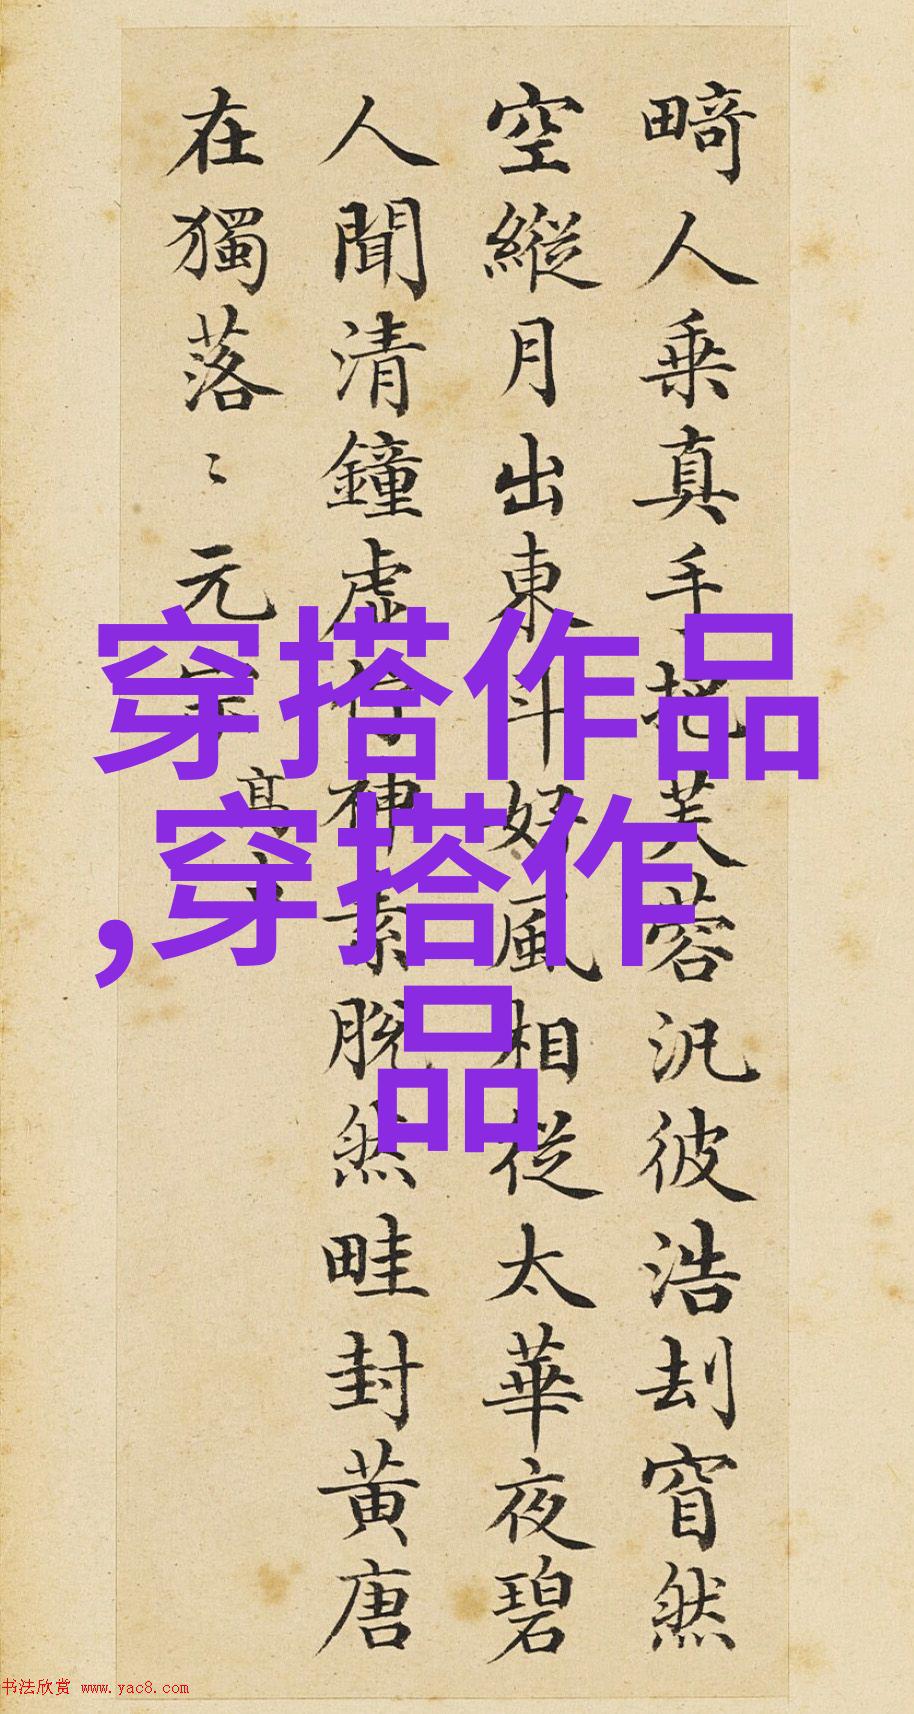 畸人乗真手把芙蓉汎彼浩刦窅然
空縱月出東斗好風相從太華夜碧
人聞清鐘虚佇神素脫然畦封黄唐
在獨落〻元
高
穿搭作品
,穿搭作
品
书法欣赏 www.yac8.com